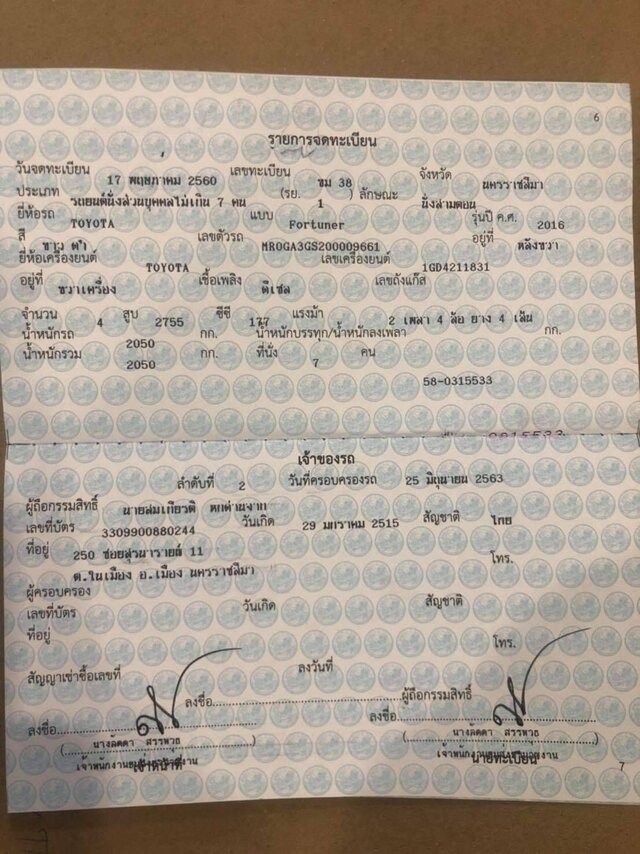 6
รายการจดทะเบียน
วันจดทะเบียน 17 พฤษภาคม 2560 เลขทะเบียน ขม 38 จังหวัด นครราชสีมา
ประเภท รถยนต์นั่งส่วนบุคคลไม่เกิน 7 คน (รย. 1 ) ลักษณะ นั่งสามตอน
ยี่ห้อรถ TOYOTA แบบ Fortuner รุ่นปี ค.ศ. 2016
สี ขาว ดำ เลขตัวรถ MR0GA3GS200009661 อยู่ที่ หลังขวา
ยี่ห้อเครื่องยนต์ TOYOTA เลขเครื่องยนต์ 1GD4211831
อยู่ที่ ขวาเครื่อง เชื้อเพลิง ดีเซล เลขถังแก๊ส
จำนวน 4 สูบ 2755 ซีซี 177 แรงม้า 2 เพลา 4 ล้อ ยาง 4 เส้น
น้ำหนักรถ 2050 กก. น้ำหนักบรรทุก/น้ำหนักลงเพลา กก.
น้ำหนักรวม 2050 กก. ที่นั่ง 7 คน
58-0315533
เจ้าของรถ
ลำดับที่ 2 วันที่ครอบครองรถ 25 มิถุนายน 2563
ผู้ถือกรรมสิทธิ์ นายสมเกียรติ
เลขที่บัตร 3309900880244 วันเกิด 29 มกราคม 2515 สัญชาติ ไทย
ที่อยู่ 250 ซอยสุรนารายณ์ 11 โทร.
ต.ในเมือง อ.เมือง นครราชสีมา
ผู้ครอบครอง
เลขที่บัตร วันเกิด สัญชาติ
ที่อยู่ โทร.
สัญญาเช่าซื้อเลขที่ ลงวันที่
ลงชื่อ ผู้ถือกรรมสิทธิ์
ลงชื่อ ลงชื่อ
( นางลัดดา สรรพวุธ ) ( นางลัดดา สรรพวุธ )
เจ้าหน้าที่ นายทะเบียน
7